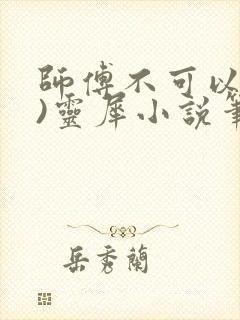 師傅不可以
)靈犀小說筆
岳秀蘭